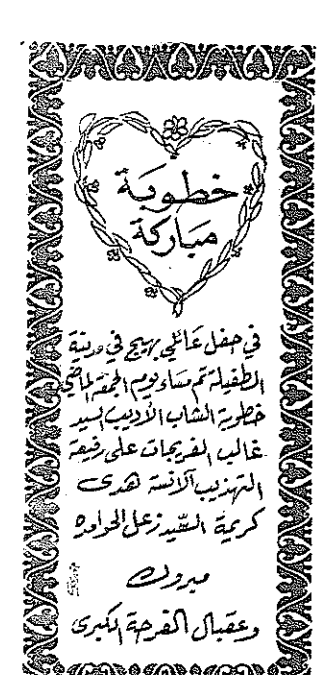 خطوبة
مباركة
في حفل عائلي بهيج في مدينة
الطفيلة تم مساء يوم الجمعة الماضي
خطوبة الشاب الأديب السيد
غالب الفريجات على رفيعة
التهذيب الآنسة هدى
كريمة السيد زعل الحوامده
مبروك
وعقبال الفرحة الكبرى